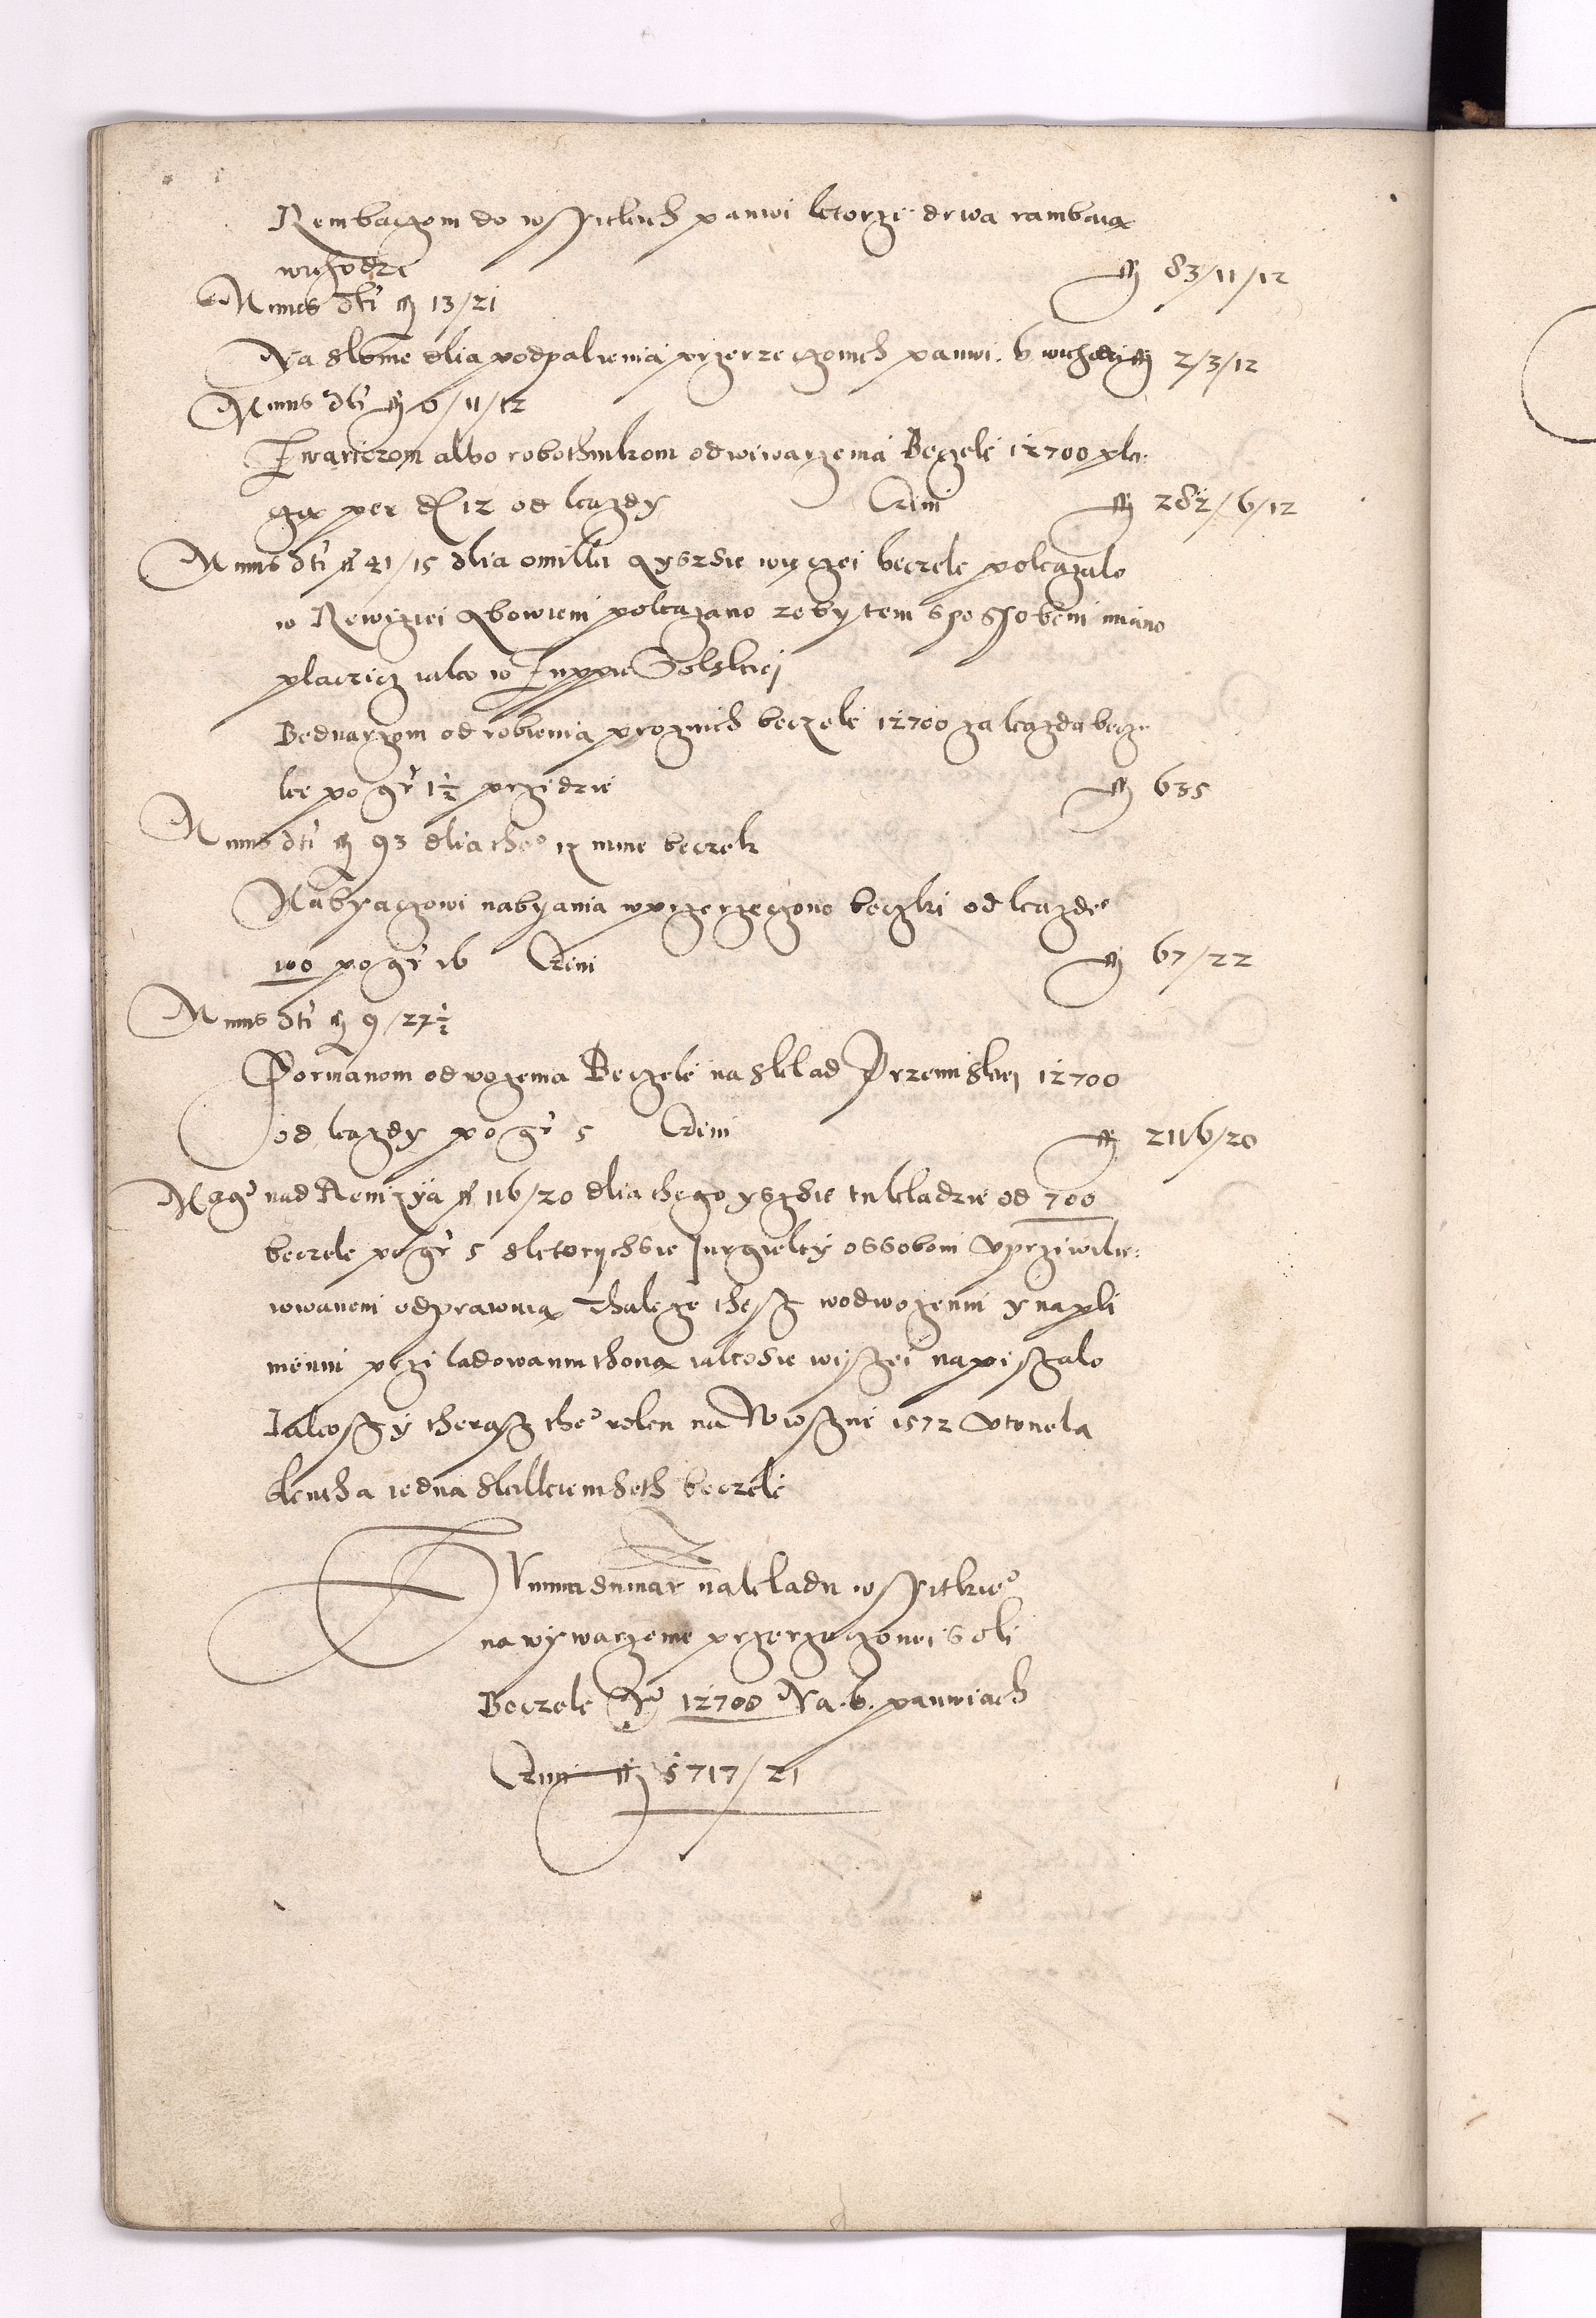 Rembaczom do wssytkich panwi ktorzi drwa rambaią
wichodzi fl 83/11/12
Minus dti fl 13/21
Na slome dlia podpalienia przerzeczonich panwi 6 wichodzi fl 2/3/12
Minus dti fl 0/11/12
Zwariczom albo robothnikom od wiwarzenia Beczek 12700 pła-
czą per d 12 od kazdy Czini fl 282/6/12
Minus dti fl 41/15 dlia omilki gysdzie wyczei beczek pokazalo
w Rewiziei abowiem pokazano zeby tem sposssobem miano
placzicz iako w Zuppie Solskiej
Bednarzom od robienia proznich beczek 12700 za kazda becz-
ke po gr 1½ przidzie fl 635
Minus dti fl 93 dlia theo yz mnie beczek
Nabyaczowi nabyania wprzerzeczono beczki od kazdeo
100 po gr 16 Czini fl 67/22
Minus dti fl 9/27½
Formanom od wozenia Beczek na sklad Przemiskiej 12700
od kazdy po gr 5 Czini fl 2116/20
Mags nad Remizyą fl 116/20 dlia thego ysgdzie tu kladzie od 700
beczek po gr 5 sktorychsie Jurgielty ossobom vprziwilie-
iowanem odprawuią Thakze thesz wodwozeniu y napli
mieniu przi ladowaniu thoną iakosie wiszei napisszalo
Jakoszy therasz theo roku na Wiosznie 1572 vtonela
klietha iedna skilkiemseth beczek
Summa summar nakladu wssitkieo
na wywarzenie przerzeczonei soli
Beczek No 12700 Na 6 panwiach
Czini fl 5717/21